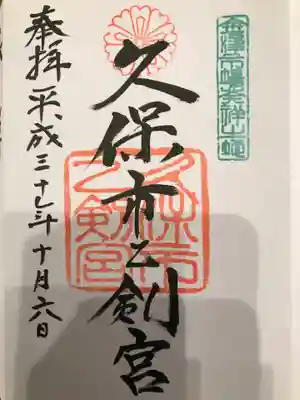 久保市乙剣宮
久保市
乙剣宮
奉拝 平成三十年十月六日